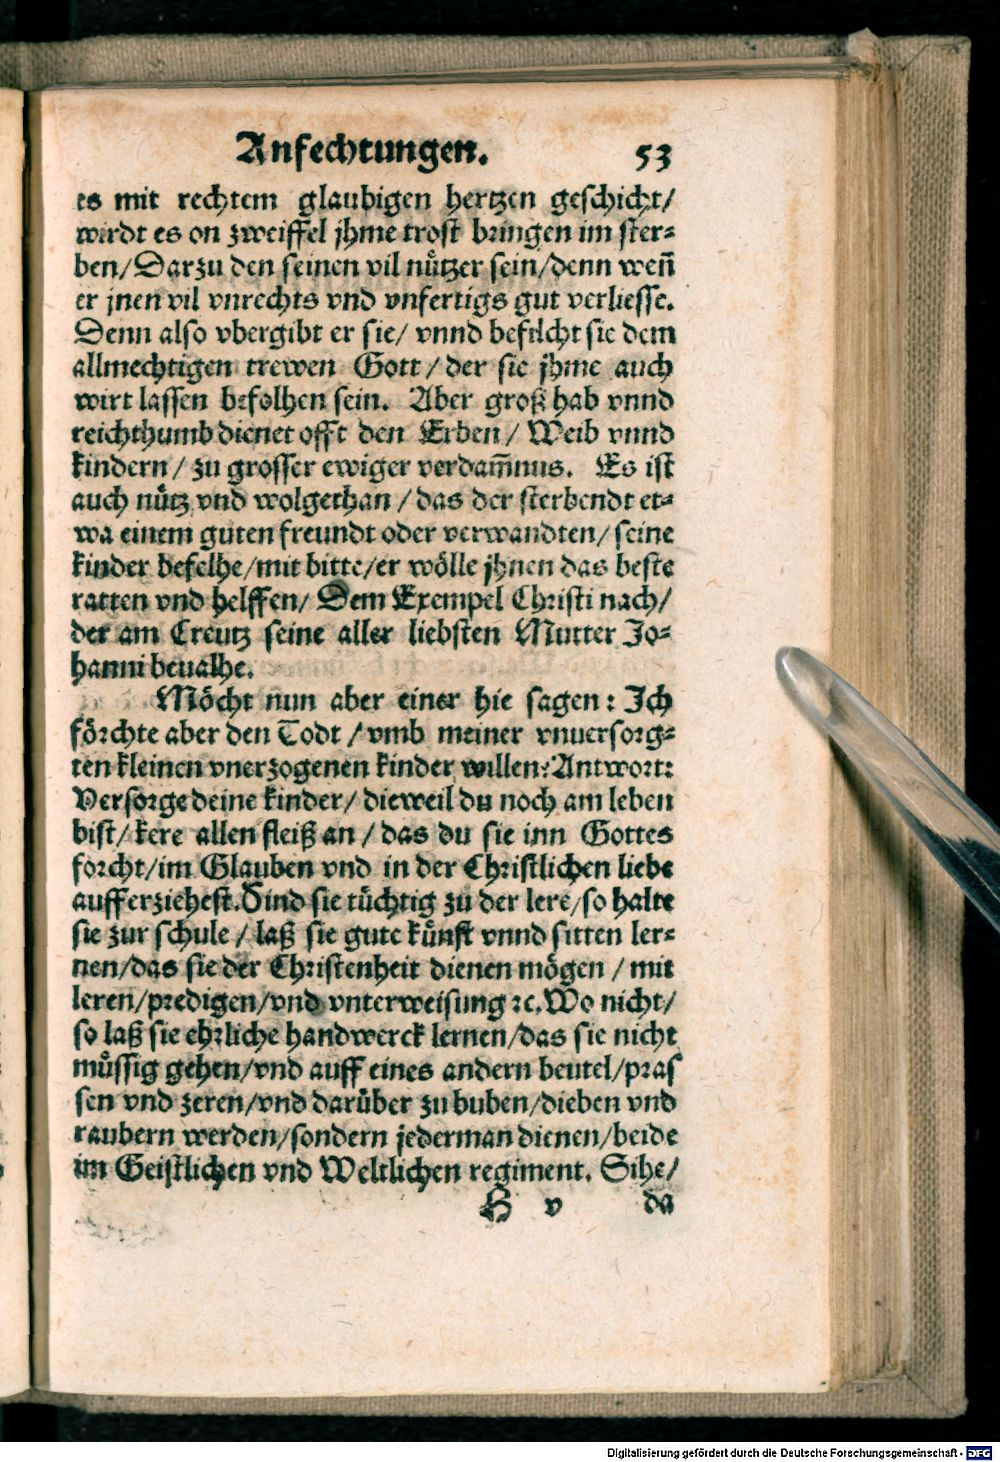 Anfechtungen. 53
es mit rechtem glaubigen hertzen geschicht/
wirdt es on zweiffel jhme trost bringen im ster=
ben/Darzu den seinen vil nützer sein/denn weñ
er jnen vil vnrechts vnd vnfertigs gut verliesse.
Denn also vbergibt er sie/ vnnd befilcht sie dem
allmechtigen trewen Gott/der sie jhme auch
wirt lassen befolhen sein. Aber groß hab vnnd
reichthumb dienet offt den Erben/ Weib vnnd
kindern/ zu grosser ewiger verdam̃nus. Es ist
auch nütz vnd wolgethan/das der sterbendt et=
wa einem guten freundt oder verwandten/ seine
kinder befelhe/mit bitte/er wölle jhnen das beste
ratten vnd helffen/ Dem Exempel Christi nach/
der am Creutz seine aller liebsten Mutter Jo=
hanni beualhe.
Möcht nun aber einer hie sagen: Jch
förchte aber den Todt/vmb meiner vnuersorg=
ten kleinen vnerzogenen kinder willen? Antwort:
Versorge deine kinder/ dieweil du noch am leben
bist/ kere allen fleiß an/das du sie inn Gottes
forcht/im Glauben vnd in der Christlichen liebe
aufferziehest. Sind sie tüchtig zu der lere/so halte
sie zur schule/ laß sie gute künst vnnd sitten ler=
nen/das sie der Christenheit dienen mögen/ mit
leren/predigen/vnd vnterweisung ꝛc. Wo nicht/
so laß sie ehrliche handwerck lernen/das sie nicht
müssig gehen/vnd auff eines andern beutel/pras
sen vnd zeren/vnd darüber zu buben/dieben vnd
raubern werden/sondern jederman dienen/beide
im Geistlichen vnd Weltlichen regiment. Sihe/
H v da
Digitalisierung gefördert durch die Deutsche Forschungsgemeinschaft - DFG